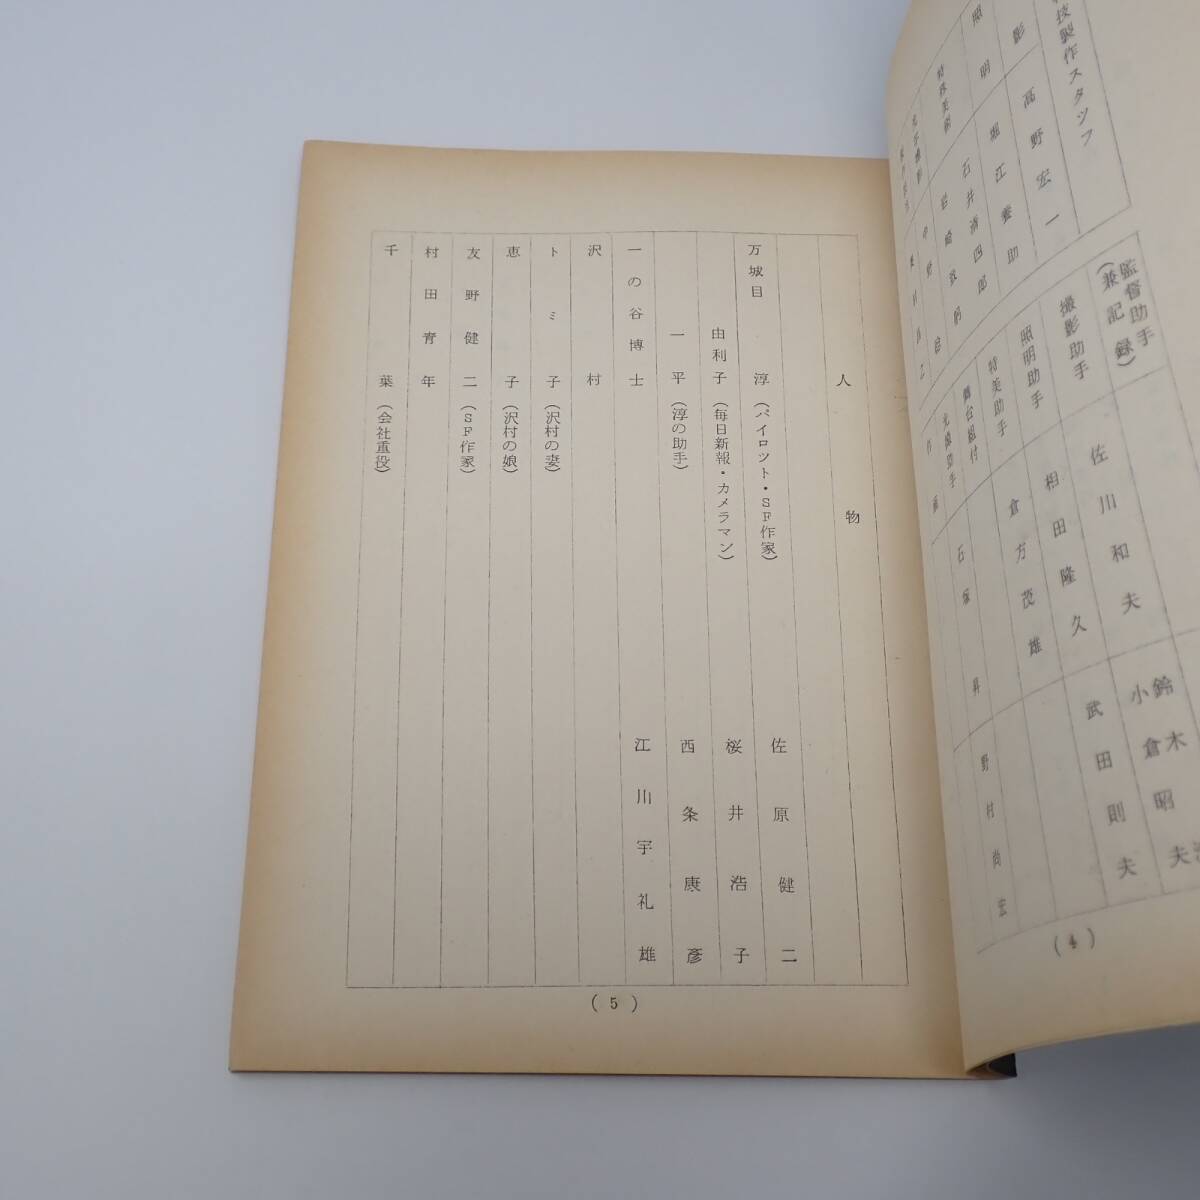 技製作スタッフ
影　高野宏一
照明　堀江養助
特殊美術　石井清四郎
監督助手
（兼記録）
撮影助手　佐川和夫
鈴木
小倉昭夫
照明助手　相田隆久　武田則夫
特美助手　倉方茂雄
石塚昇　野村尚宏
（4）
人物
万城目　淳（パイロツト・SF作家）　佐原健二
由利子（毎日新報・カメラマン）　桜井浩子
一平（淳の助手）　西条康彦
一の谷博士　江川宇礼雄
沢村
トミ子（沢村の妻）
恵子（沢村の娘）
友野健二（SF作家）
村田青年
千葉（会社重役）
（5）